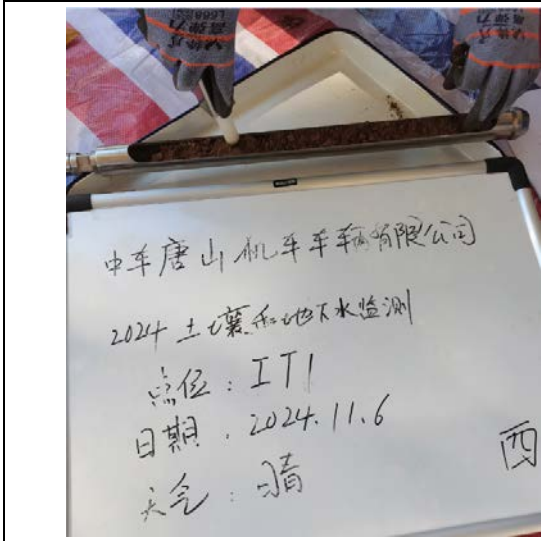 中车唐山机车车辆有限公司
2024 土壤和地下水监测
点位：IT1
日期：2024.11.6
天气：晴
西